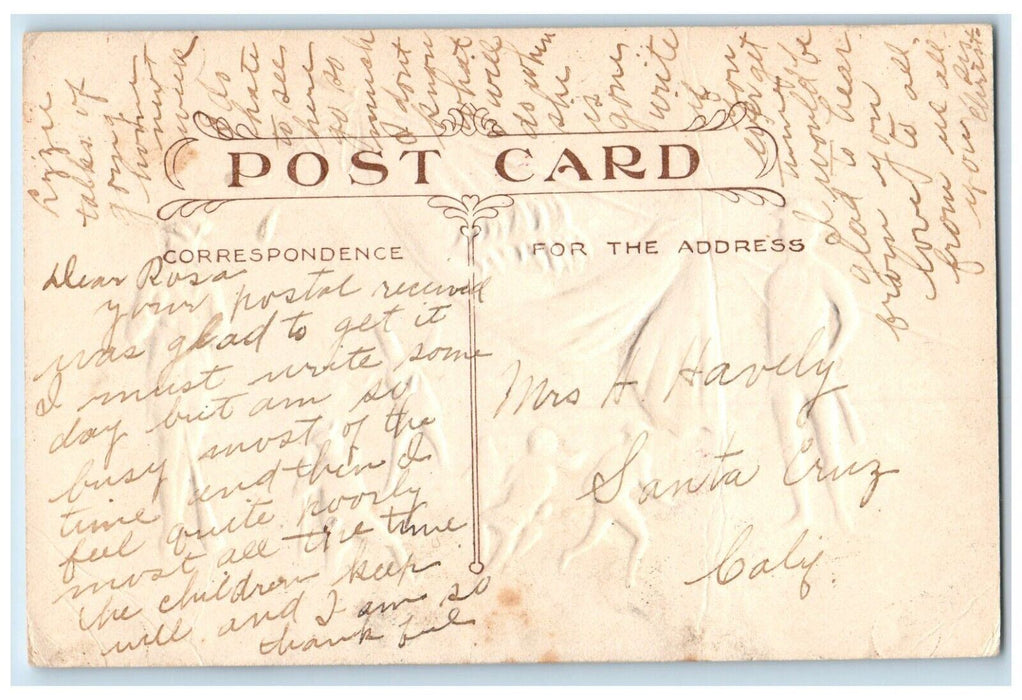 POST CARD
CORRESPONDENCE
FOR THE ADDRESS
Dear Rosa
your postal received
was glad to get it
I must write some
day but am so
busy most of the
time and then I
feel quite poorly
most all the time
the children keep
well and I am so
thankful
Mrs H. Havely
Santa Cruz
Calif.
Lizzie
talks of
going
home
next
week
I do
hate
to see
her
go so
much
I dont
know
what
will
do when
she
is
gone
write
if
you
get
time
I would be
glad to hear
from you
love to all
from us all
you